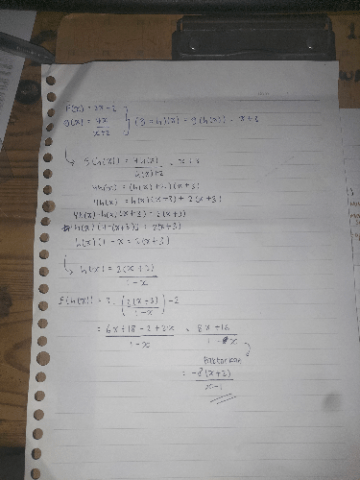 f(x) = 3x - 2
g(x) = 4x / x+2 } (g ∘ h)(x) = g(h(x)) = x+3
↳ g(h(x)) = 4h(x) / h(x)+2 = x+3
4h(x) = (h(x)+2)(x+3)
4h(x) = h(x)(x+3) + 2(x+3)
4h(x) - h(x)(x+3) = 2(x+3)
h(x)(4-(x+3)) = 2(x+3)
h(x)(1-x = 2(x+3)
↳ h(x) = 2(x+3) / 1-x
f(h(x)) = 3 . (2(x+3) / 1-x) - 2
= 6x+18-2+2x / 1-x = 8x+16 / 1-x
Faktorkan
= -8(x+2) / x-1